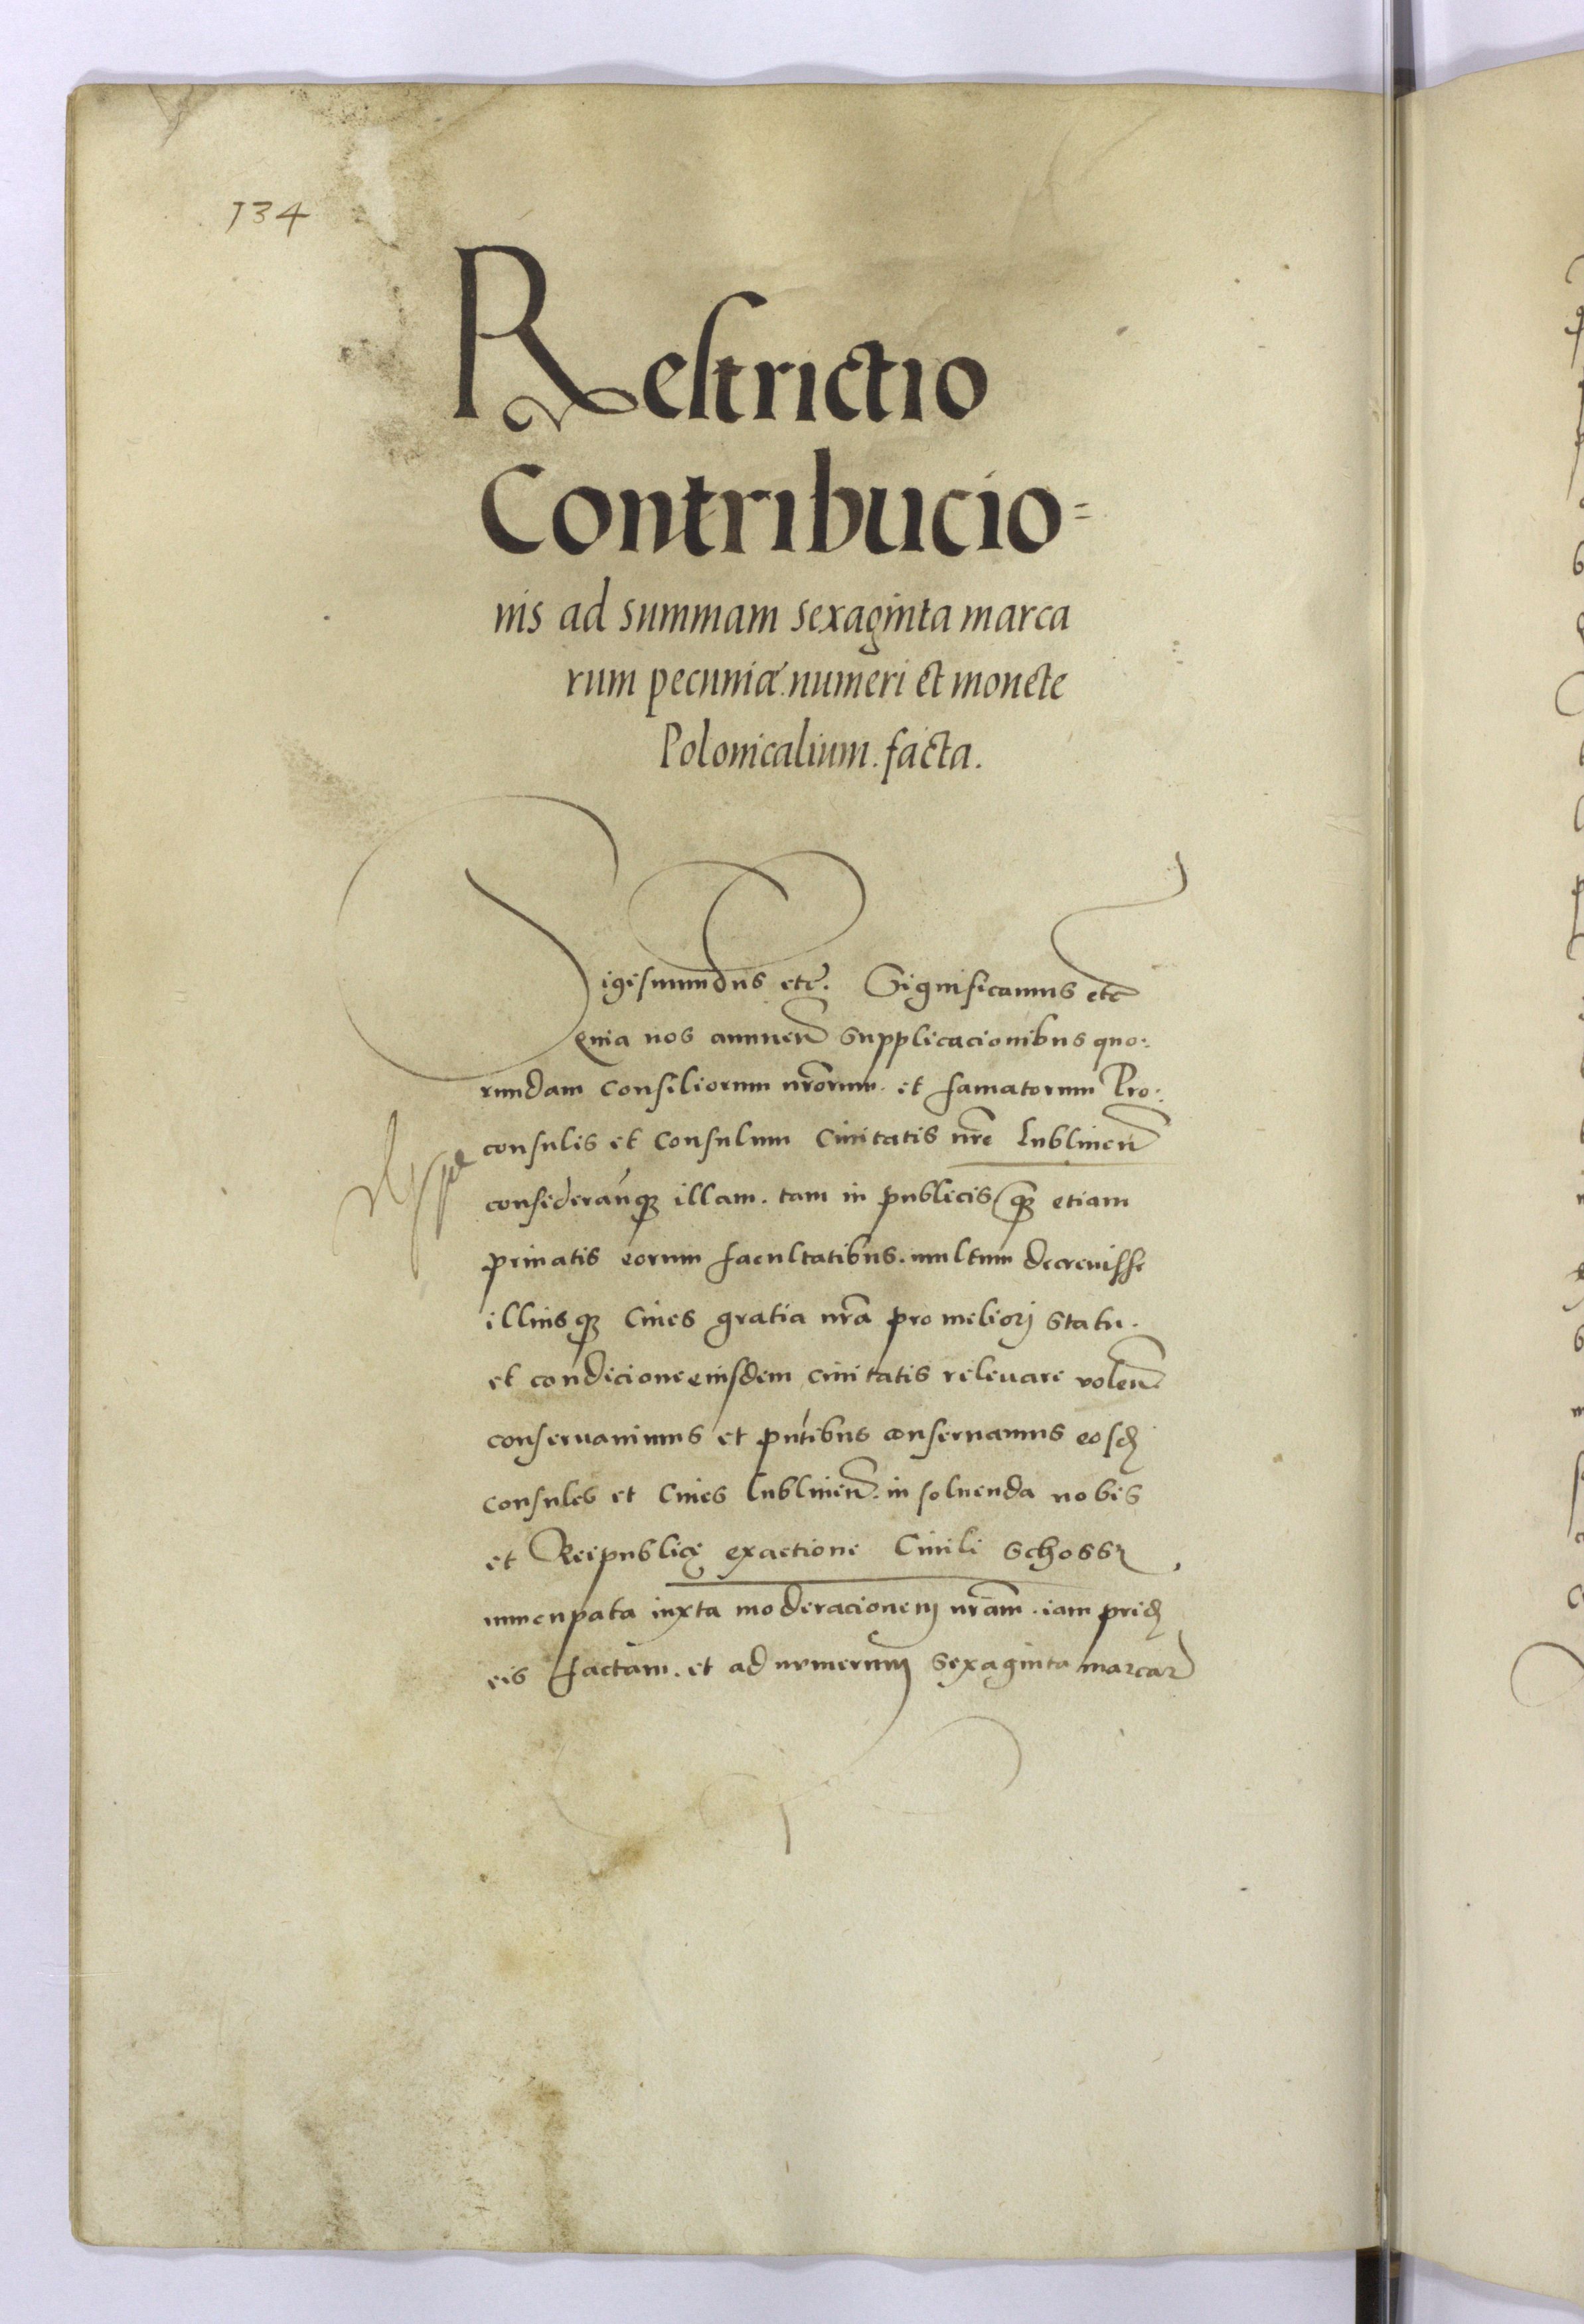 134
Restrictio
Contribucio=
nis ad summam sexaginta marca
rum pecuniæ numeri et monete
Polonicalium. facta.
Sigismundus etc̃. Significamus etc̃
quia nos annuen̄ supplicacionibus quo:
rundam consiliorum nr̃orum. et famatorum Pro:
consulis et consulum ciuitatis nr̃e Lublinen̄
consideran̄q3 illam. tam in publicis q̃3 etiam
priuatis eorum facultatibus. multum decreuisse
illiusq3 ciues gratia nr̃a pro meliorj statu.
et condicione eiusdem ciuitatis releuare volen̄
conseruauimus et pn̄tibus conseruamus eosd̄
consules et Ciues Lublinen̄. in soluenda nobis
et Reipublicę exactione Ciuili schoss
nuncupata iuxta moderacionem nr̃am. iam prid̄
eis factam. et ad numerum sexaginta marcar̄